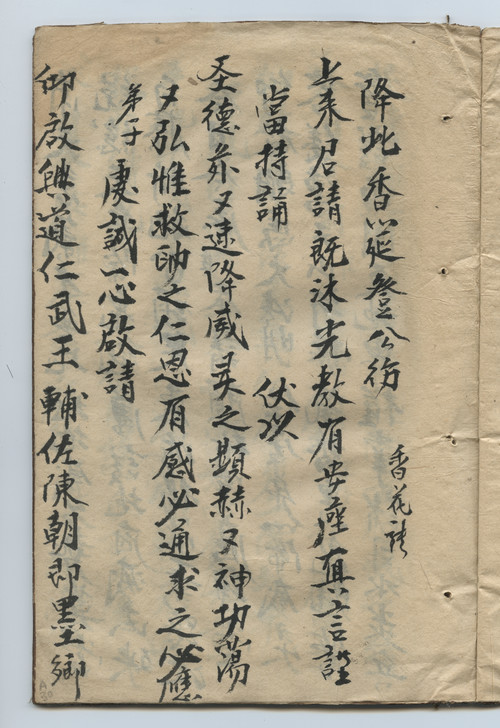 降此香筵登公
香花請
上来召請既沐光教有安座真言謹
當持誦 伏以
圣德亦又速降威灵之顕赫又神功蕩
又弘惟救助之仁恩有感必通求之必應
弟子虔誠一心啟請
仰啟興道仁武王輔佐陳朝即墨鄉